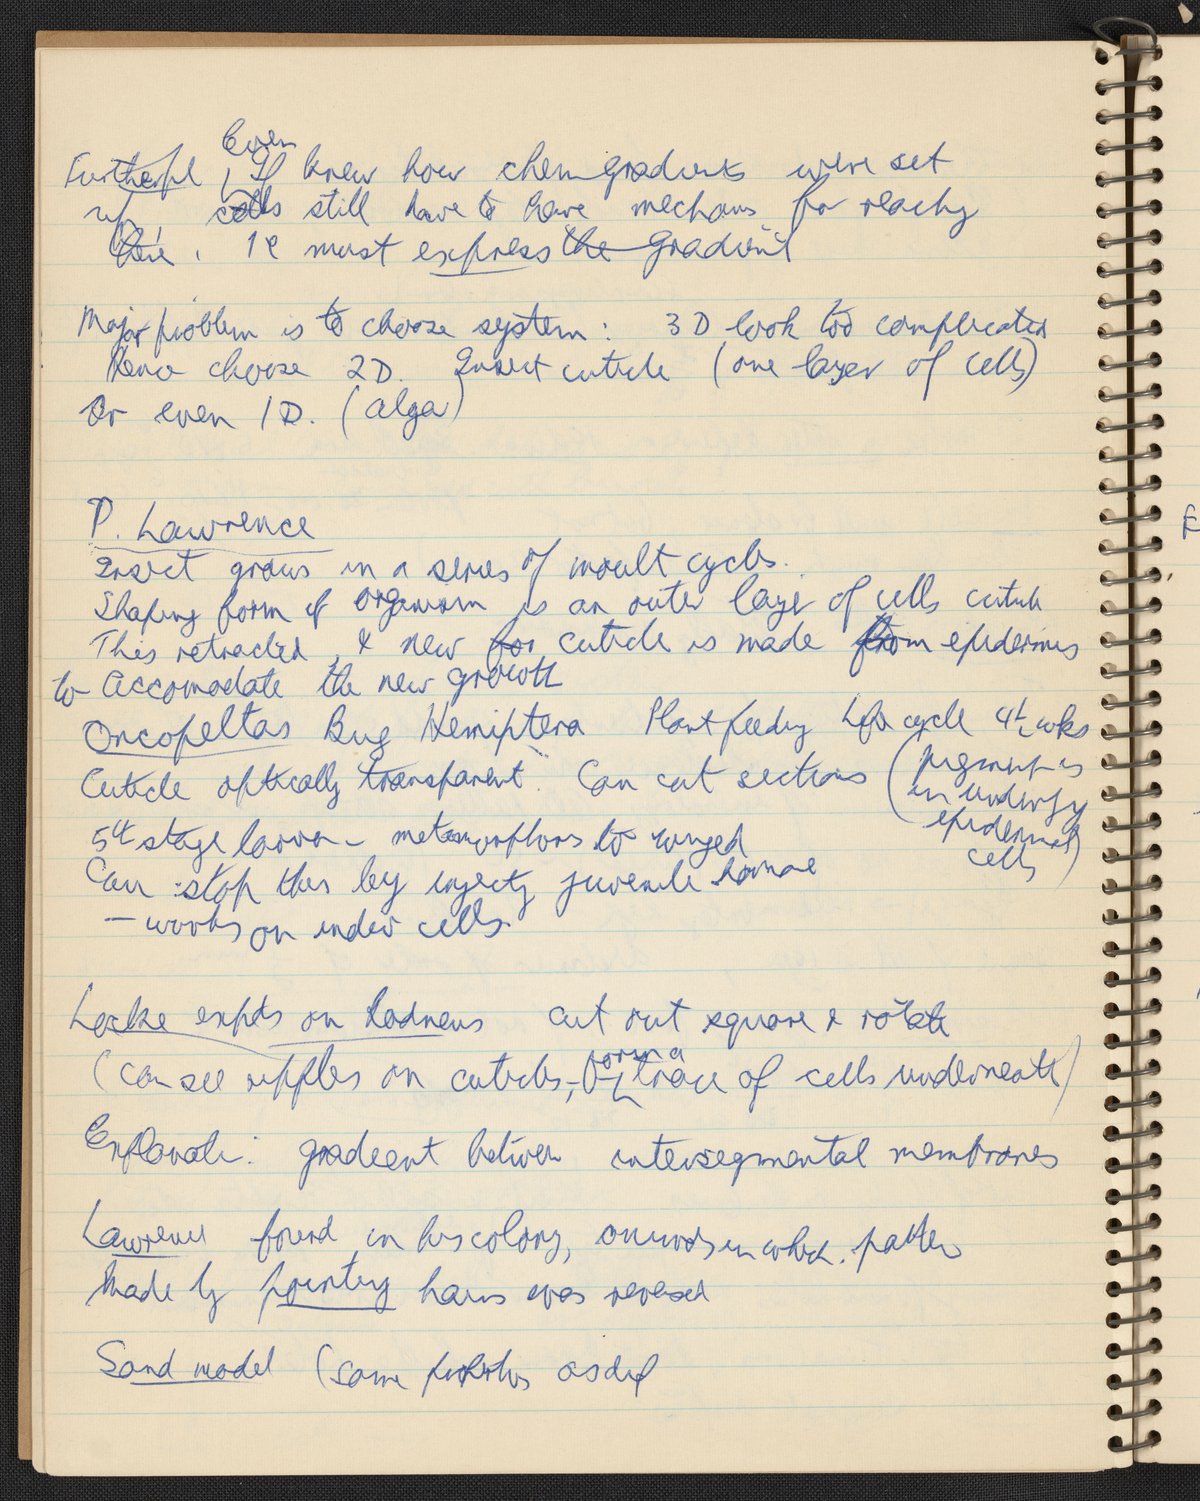 Even
If knew how chem gradients were set
up, cells still have to have mechans for
there. Ie must express the gradient
Major problem is to choose system: 3D look too complicated
Hence choose 2D. Insect cuticle (one layer of cells)
Or even 1D. (alga)
P. Lawrence
Insect grows in a series of moult cycles.
Shaping form of organism is an outer layer of cells cuticle
This retracted & new for cuticle is made from epidermis
to accomodate the new growth
Oncopeltas Bug Hemiptera Plant feeding Life cycle 4½ wks
Cuticle optically transparent. Can cut sections (pigment is
in underlying
epidermal
cells)
5th stage larva - metamorphosis to winged
Can stop this by injecting juvenile
- works on under cells.
Locke expts on cut out square & rotate
(can see ripples on cuticles, - trace of cells underneath)
gradient between intersegmental membranes
Lawrence found in his colony, in which pattern
made by pointing hairs was reversed
Sand model (same